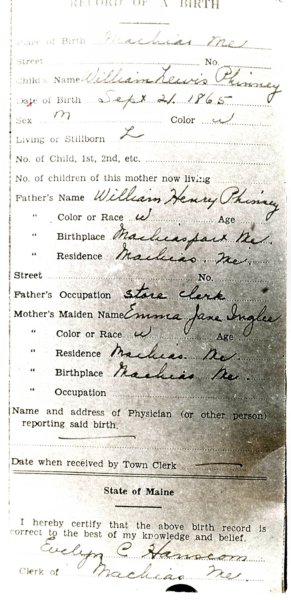 RECORD OF A BIRTH
Place of Birth Machias Me
Street No.
Child's Name William Lewis Phinney
Date of Birth Sept 21, 1865
Sex M Color W
Living or Stillborn L
No. of Child, 1st, 2nd, etc.
No. of children of this mother now living
Father's Name William Henry Phinney
" Color or Race W Age
" Birthplace Machiasport Me.
" Residence Machias, Me.
Street No.
Father's Occupation Store Clerk
Mother's Maiden Name Emma Jane Inglee
" Color or Race W Age
" Residence Machias. Me.
" Birthplace Machias Me.
" Occupation
Name and address of Physician (or other person)
reporting said birth.
Date when received by Town Clerk
State of Maine
I hereby certify that the above birth record is
correct to the best of my knowledge and belief.
Evelyn C Hanscom
Clerk of Machias Me.